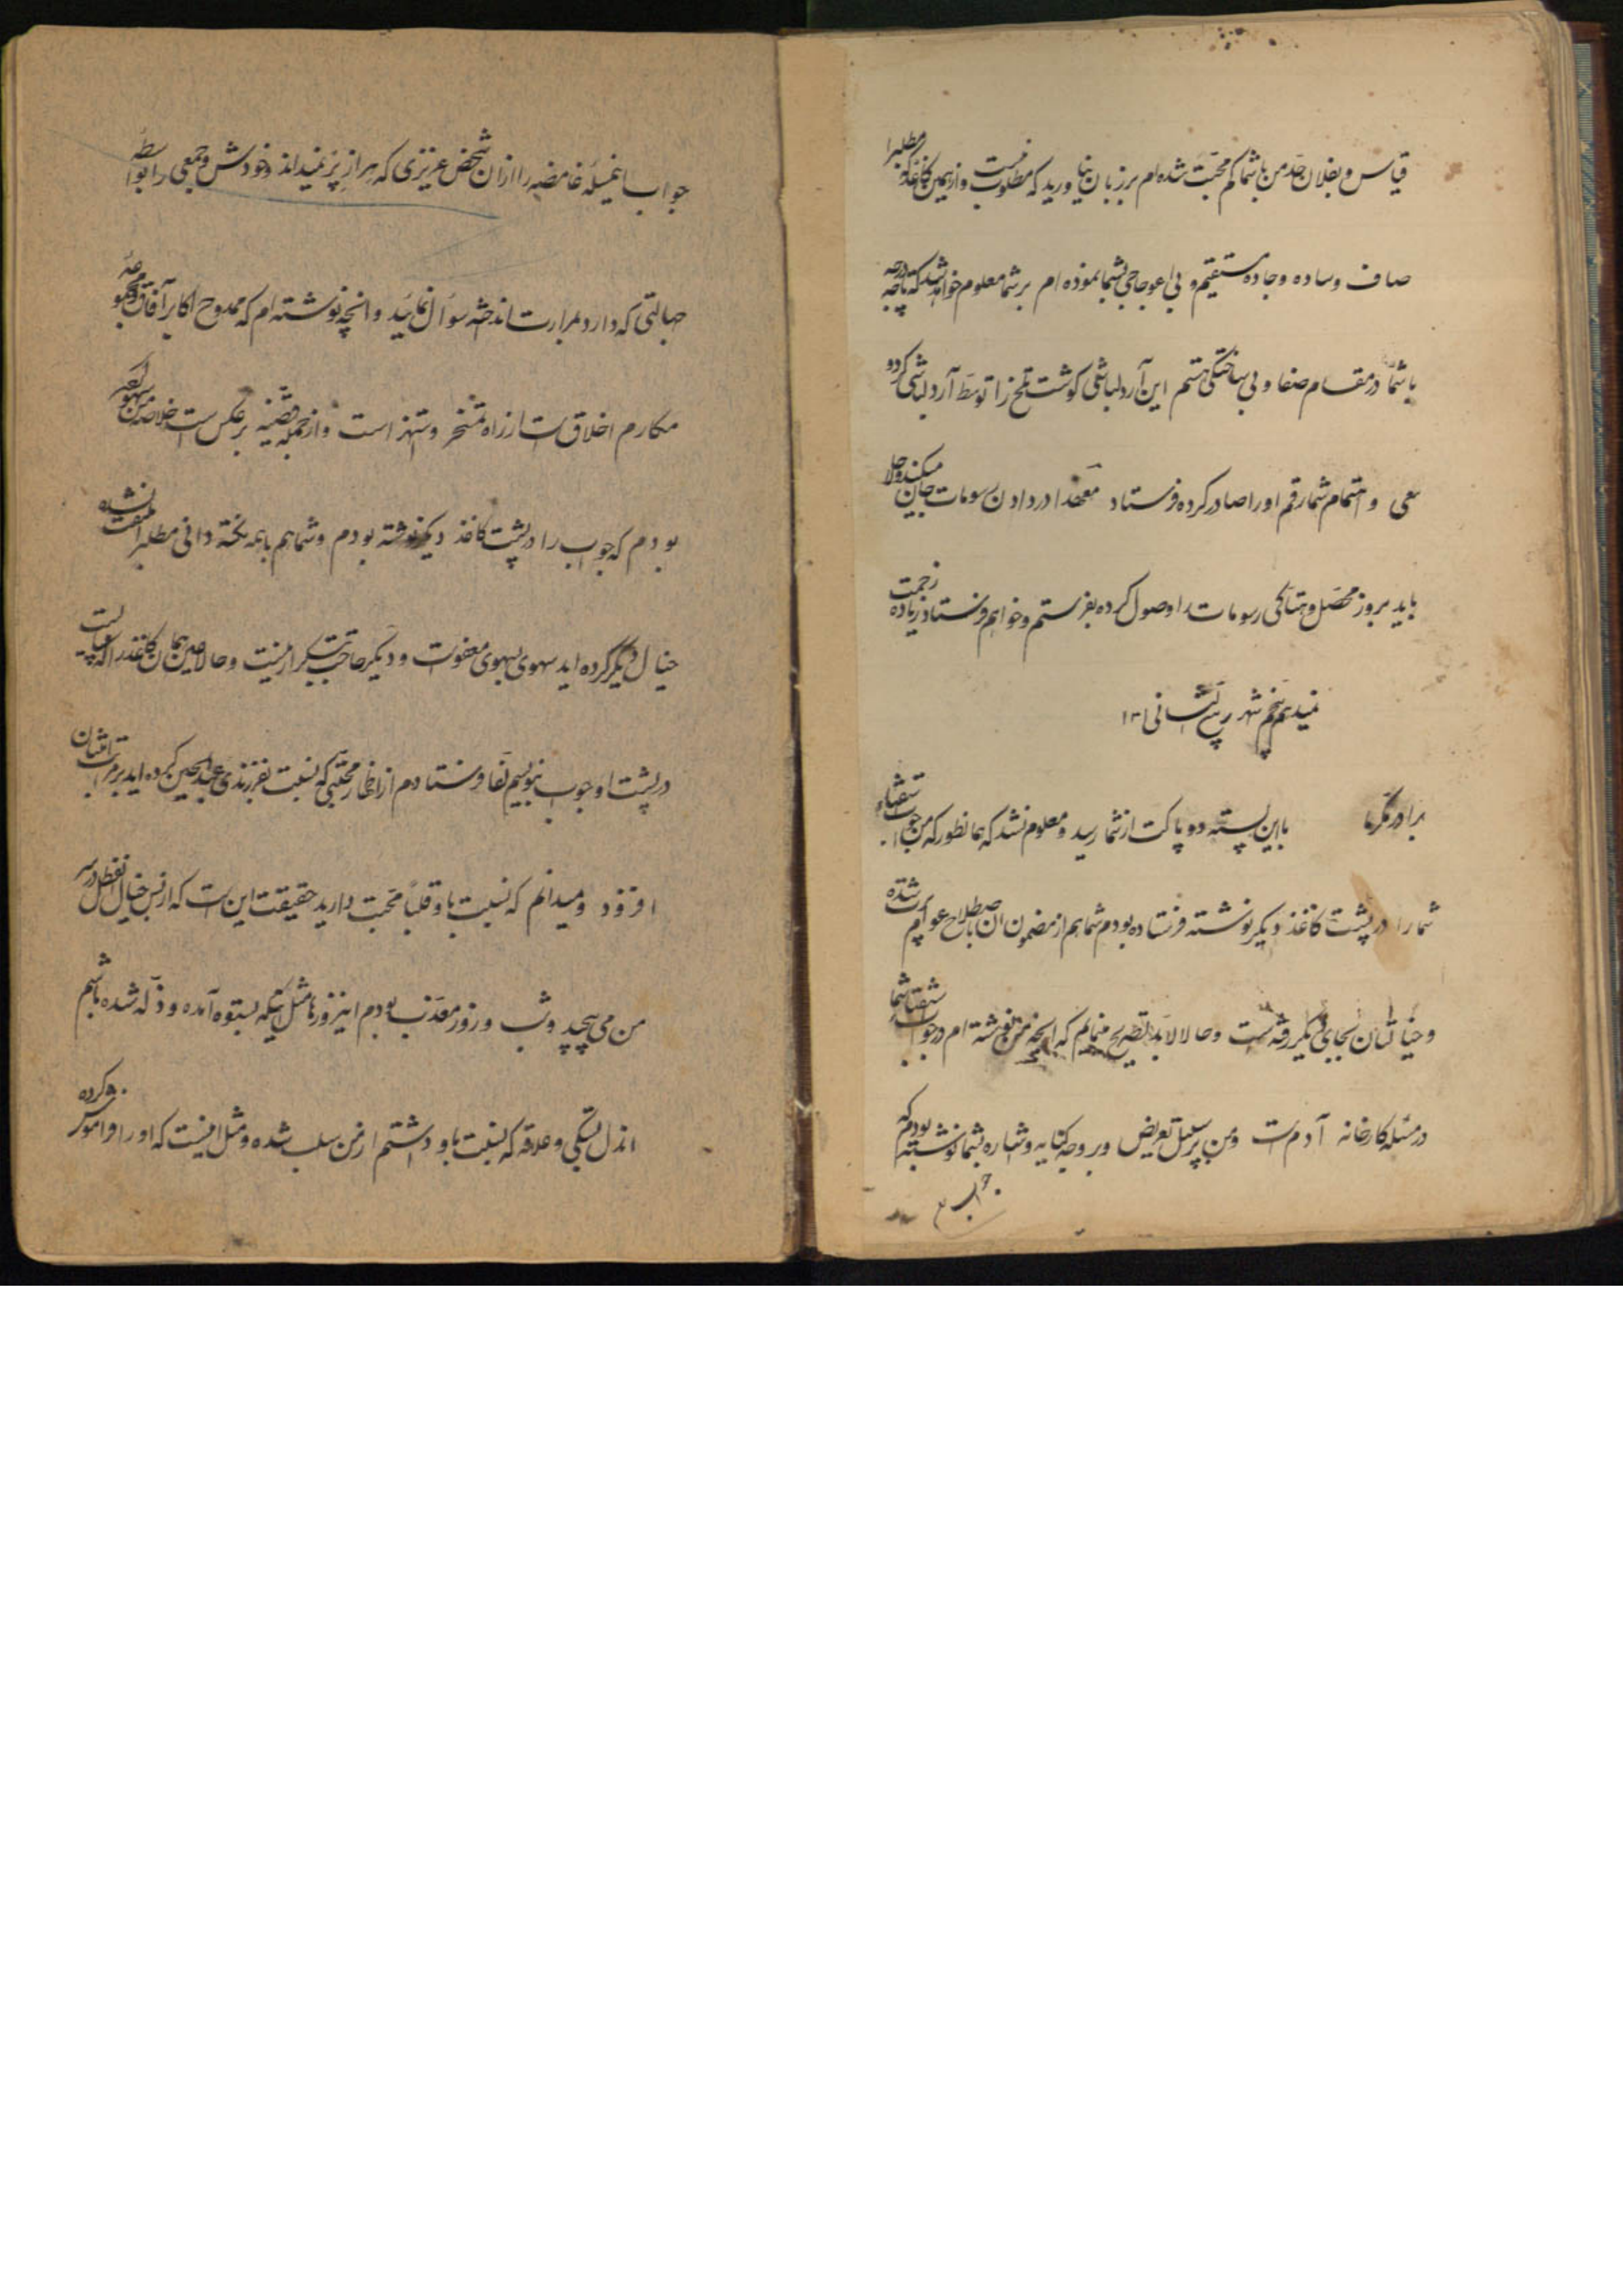 قیاس و بفلان حد من با شما کم محبت شده‌ام بر زبان بیاورید که مطلوب نیست و از همین کاغذ که مطلب را
صاف و ساده و جاده مستقیم و بی اعوجاجی بشما نموده‌ام بر شما معلوم خواهد شد که تا چه درجه
با شما در مقام صفا و بی ساختگی هستم این آردلباشی گوشت تلخ را توسط آردلباشی کرد و
سعی و اهتمام شما رقم او را صادر کرده فرستاد معهذا در دادن رسومات میکند و حالا
باید بروز محصل و هتاکی رسومات را وصول کرده بفرستم و خواهم فرستاد زیاده زحمت
نمیدهم پنجم شهر ربیع الثانی ۱۳
برادر مکرما با این پسته دو پاکت از شما رسید و معلوم نشد که همانطور که من جواب استفتاء
شما را در پشت کاغذ دیگر نوشته فرستاده بودم شما هم از مضمون آن باصطلاح عوام پرت شده
و خیالتان بجای دیگر رفته است و حالا لابد تصریح مینمایم که آنچه من نوشته‌ام در جواب استفتاء شما
در مسئله کارخانه آدم است و من بر سبیل تعریض و بر وجه کنایه و اشاره بشما نوشته بودم که
جواب
جواب اینمسئله غامضه را از آن شخص عزیزی که هر از پر نمیداند و خودش و جمعی را بواسطه
جهالتی که دارد بمرارت انداخته سؤال نمائید و آنچه نوشته‌ام که ممدوح اکابر آفاق و مجموعه
مکارم اخلاق است از راه تمسخر و استهزاء است و از جمله قضیه بر عکس است خلاصه من سهو کرده
بودم که جواب را در پشت کاغذ دیگر نوشته بودم و شما هم با همه نکته دانی مطلب را ملتفت نشده
خیال دیگر کرده‌اید سهوی بسهوی معفوست و دیگر حاجت بتکرار نیست و حالا عین همان کاغذ را که
در پشت او جواب بنویسم لفا فرستادم از اظهار محبتی که نسبت بفرزندی عبدالحسین کرده‌اید بر مراتب امتنان
افزود و میدانم که نسبت باو قلبا محبت دارید حقیقت این است که از بس خیال این طفل در سر
من می پیچید و شب و روز معذب بودم این روزها مثل اینکه بستوه آمده و ذله شده باشم
آن دل بستگی و علاقه که نسبت باو داشتم از من سلب شده و مثل اینست که او را فراموش کرده